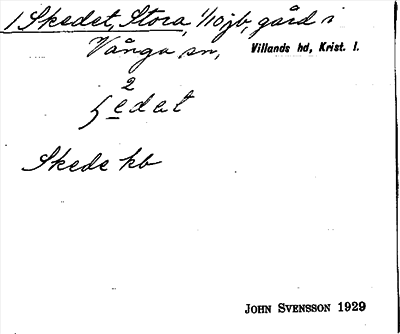 1 Skedet, Stora, 1/10 jb, gård i
Vånga sn, Villands hd, Krist. l.
2
edet
Skede kb
JOHN SVENSSON 1929